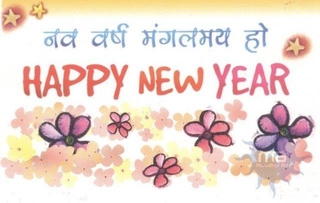 नव वर्ष मंगलमय हो
HAPPY NEW YEAR